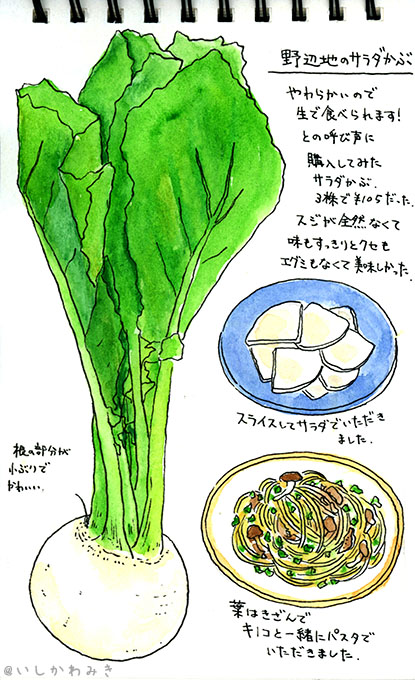 野辺地のサラダかぶ
やわらかいので
生で食べられます!
との呼び声に
購入してみた
サラダかぶ.
3株で¥105だった.
スジが全然なくて
味もすっきりとクセも
エグミもなくて美味しかった.
スライスしてサラダでいただき
ました.
根の部分が
小ぶりで
かわいい.
葉はきざんで
キノコと一緒にパスタで
いただきました.
@いしかわみき